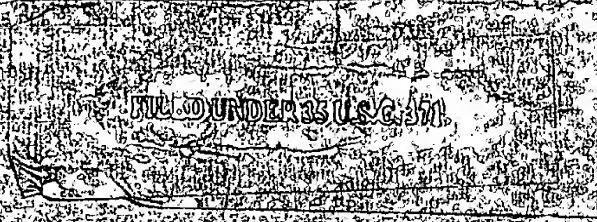 FILED UNDER 35 U.S.C. 371